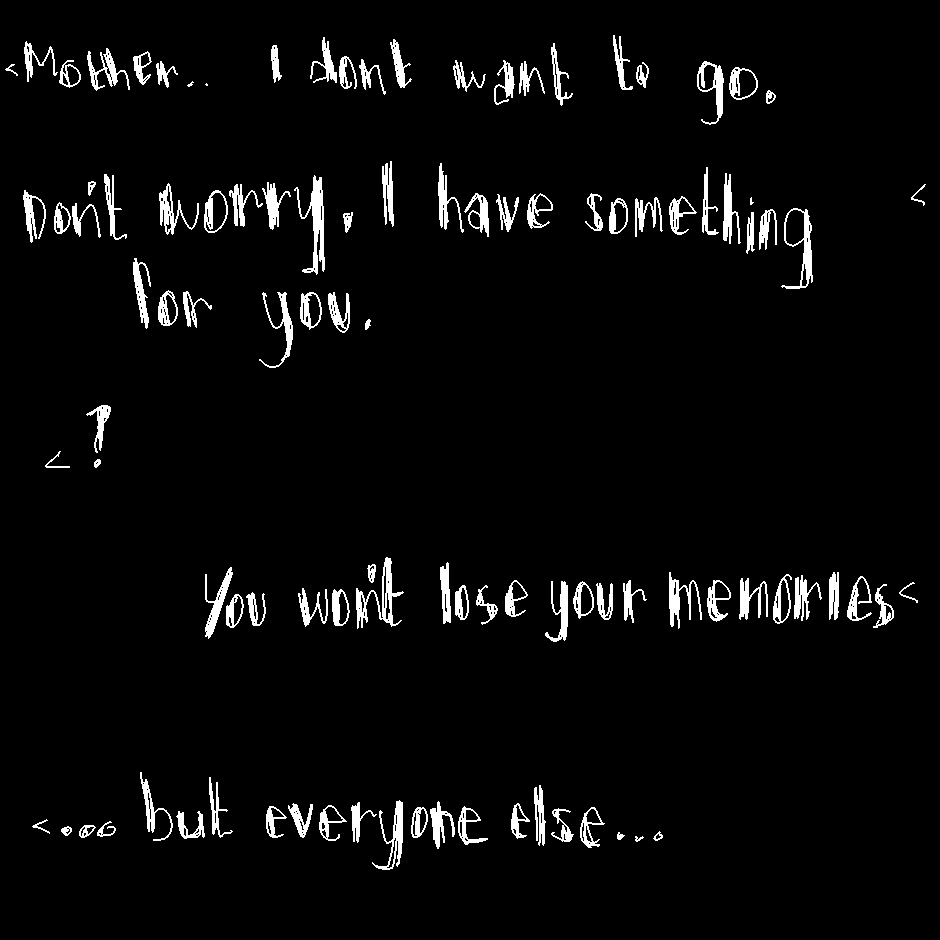 <Mother.. I dont want to go.
Don't worry. I have something <
for you.
<?
You won't lose your memories<
<... but everyone else...